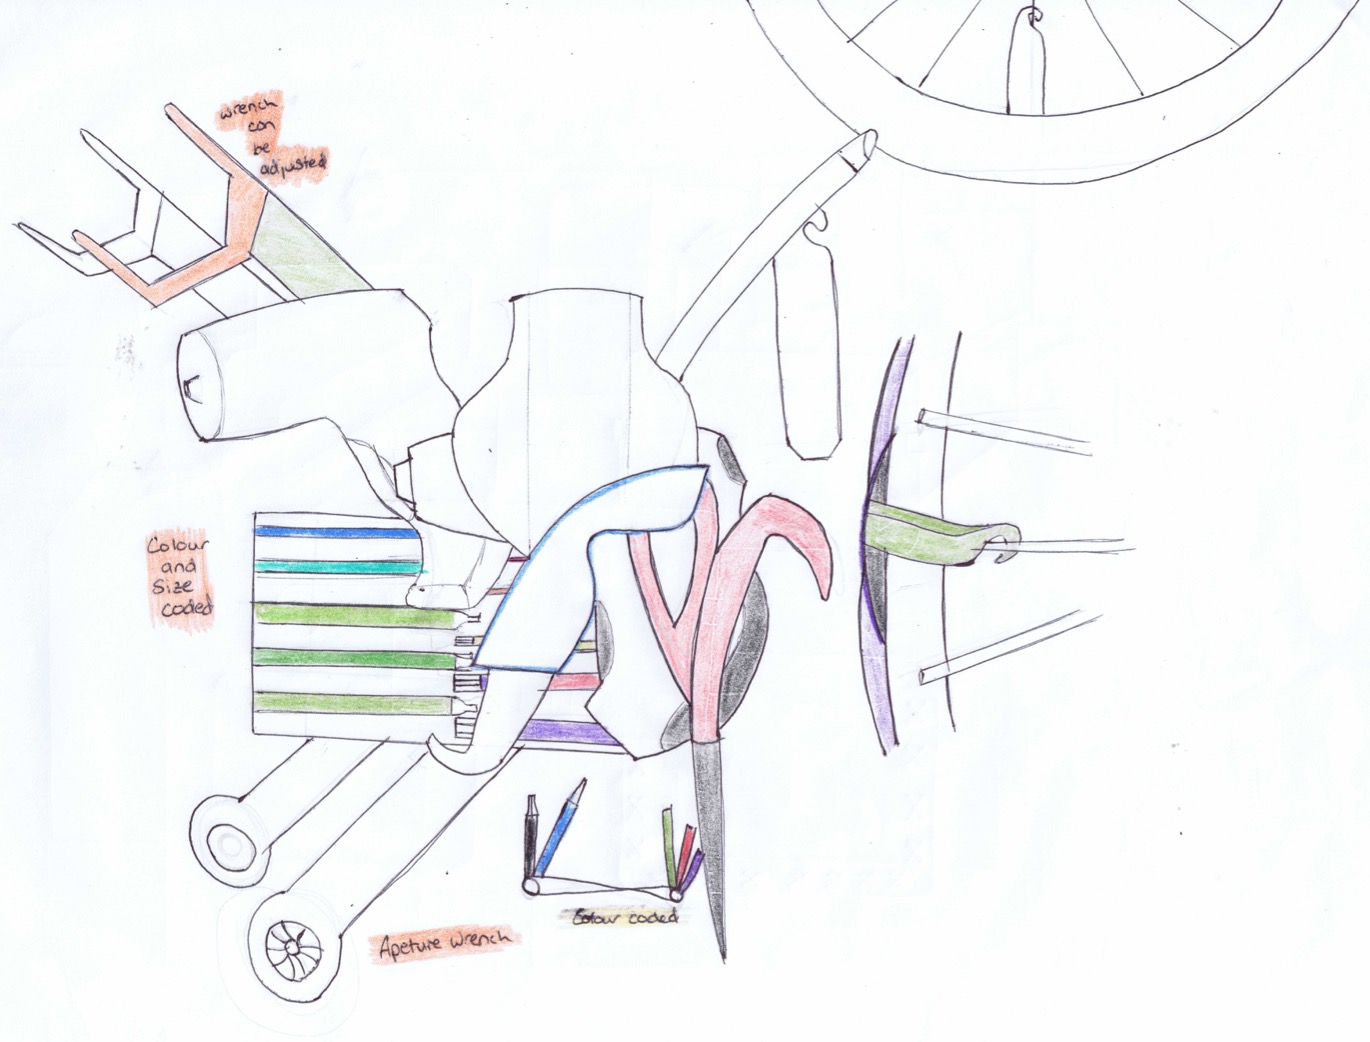 wrench
can
be
adjusted
Colour
and
Size
coded
Colour coded
Apeture wrench